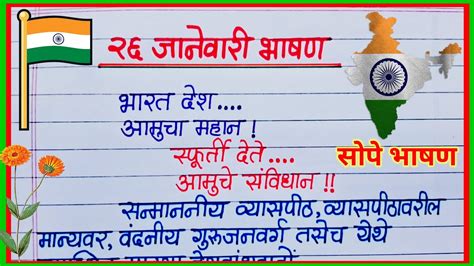 २६ जानेवारी भाषण
भारत देश....
आमुचा महान !
स्फूर्ती देते....
आमुचे संविधान !!
सोपे भाषण
सन्माननीय व्यासपीठ, व्यासपीठावरील
मान्यवर, वंदनीय गुरुजनवर्ग तसेच येथे